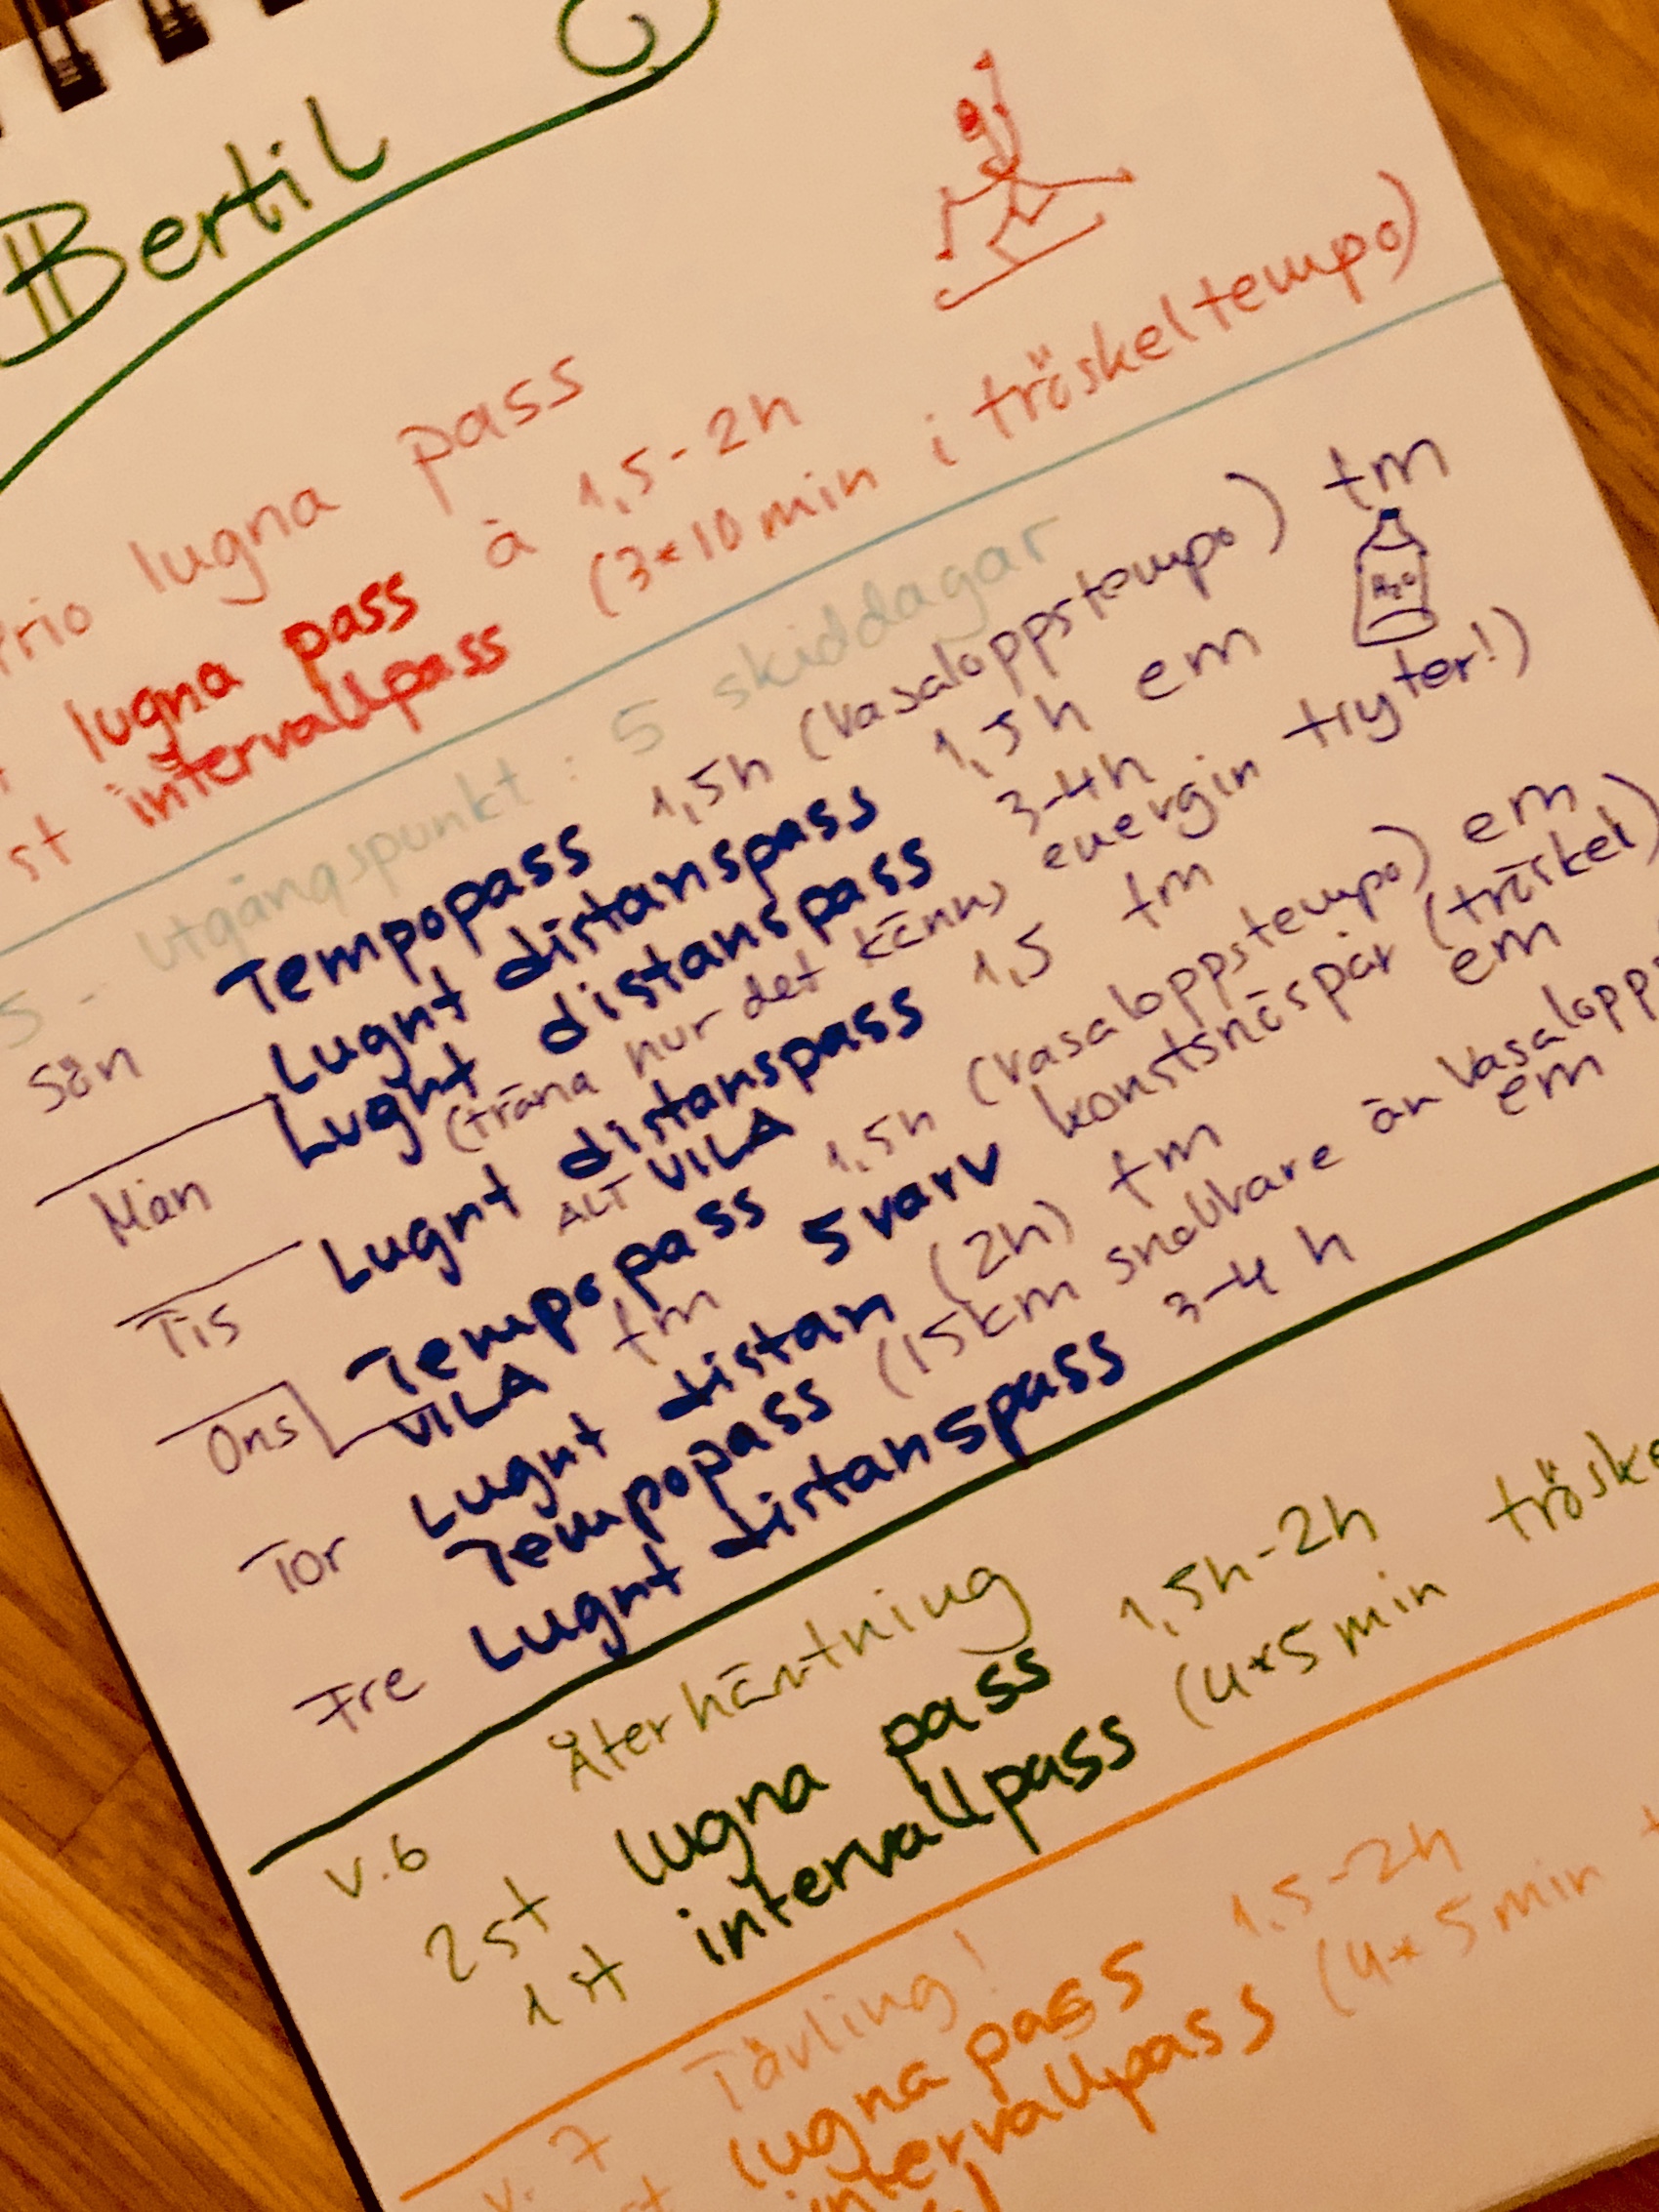 Bertil
Prio lugna pass
lugna pass à 1,5-2h
st intervallpass (3*10min i tröskeltempo)
5 - Utgångspunkt: 5 skiddagar
Sön Tempopass 1,5h (vasaloppstempo) tm
Lugnt distanspass 1,5h em
H2O
Mån Lugnt distanspass 3-4h
(träna hur det känns energin tryter!)
Tis Lugnt distanspass 1,5 tm
ALT VILA
Tempopass 1,5h (vasaloppstempo) em
Ons VILA fm 5 varv konstsnöspår (tröskel)
em
Tor Lugnt distan (2h) fm
Tempopass (15km snabbare än vasalopp
em
Fre Lugnt distanspass 3-4 h
v.6 Återhämtning
2st lugna pass 1,5h-2h
1st intervallpass (4*5min tröske
v. 7 Tävling!
st lugna pass 1,5-2h
intervallpass (4*5min t